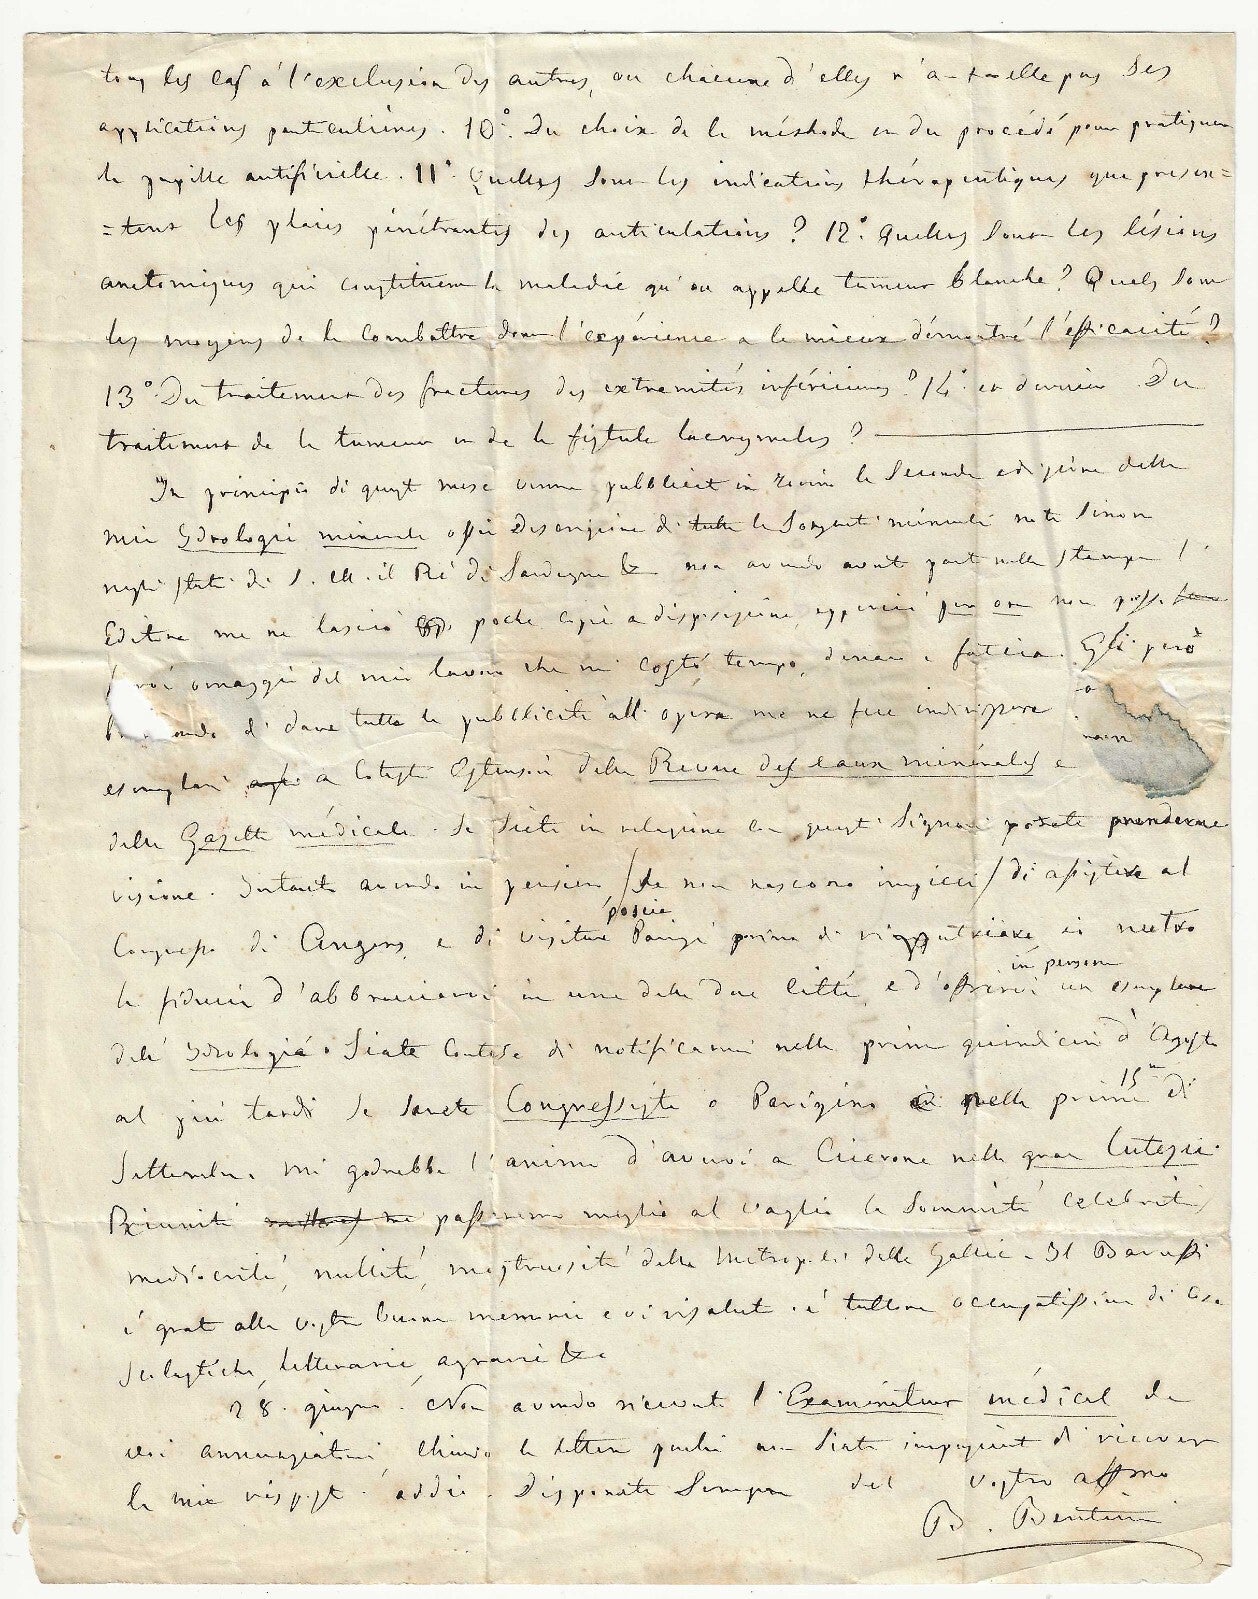 tous les cas à l'exclusion des autres, ou chacune d'elles n'a-t-elle pas des
applications particulières. 10°. Du choix de la méthode et du procédé pour pratiquer
la pupille artificielle. 11° Quelles sont les indications thérapeutiques que présen=
=tent les plaies pénétrantes des articulations? 12°. Quelles sont les lésions
anatomiques qui constituent la maladie qu'on appelle tumeur blanche? Quels sont
les moyens de la combattre dont l'expérience a le mieux démontré l'efficacité?
13° Du traitement des fractures des extremités inférieures? 14° et dernier Du
traitement de la tumeur et de la fistule lacrymales?
In principio di quest mese venne pubblicat in Torino la Seconda edizione della
mia Idrologia minerale ossia Descrizione di tutte le Sorgenti minerali note sinora
negli stati di S. M. il Ré di Sardegna &c non avendo avut part nella stampa l'
Editore me ne lasciò poche copie a disposizione, epperciò per ora non posso
farvi omaggio del mio lavoro che mi costò tempo, denaro e fatica. Egli però
di dare tutta la pubblicità all'opera me ne fece indirizzare
esemplari a cotesti Estensori della Revue des eaux minérales e
della Gazette médicale. Se siete in relazione con questi Signori potete prenderne
visione. Intanto avendo in pensiero /se non nascono impicci/ di assistere al
Congresso di Angers, e di visitare poscia Parigi prima di rimpatriare, io nutro
la fiducia d'abbracciarvi in una delle due città, e d'offrirvi in persona un esemplare
dell'Idrologia. Siate cortese di notificarmi nella prima quindicina d'Agosto
al più tardi se sarete Congressista o Parigino nella prima 15na di
Settembre. Mi godrebbe l'animo d'avervi a Cicerone nella gran Lutezia.
Riuniti passeremo meglio al vaglio le Sommità celebrità,
mediocrità, nullità, mostruosità della Metropoli delle Gallie. Il Baruffi
è grat alla vostra buona memoria e vi risaluta. è tuttora occupatissimo di cose
scolastiche, letterarie, agrarie &c
28. giugno. Non avendo ricevuto l'Examinateur médical da
voi annunziatomi, chiudo la lettera perchè non siate impazient di ricever
la mia rispost. addio. Disponete sempre del vostro affmo
B. Bertini